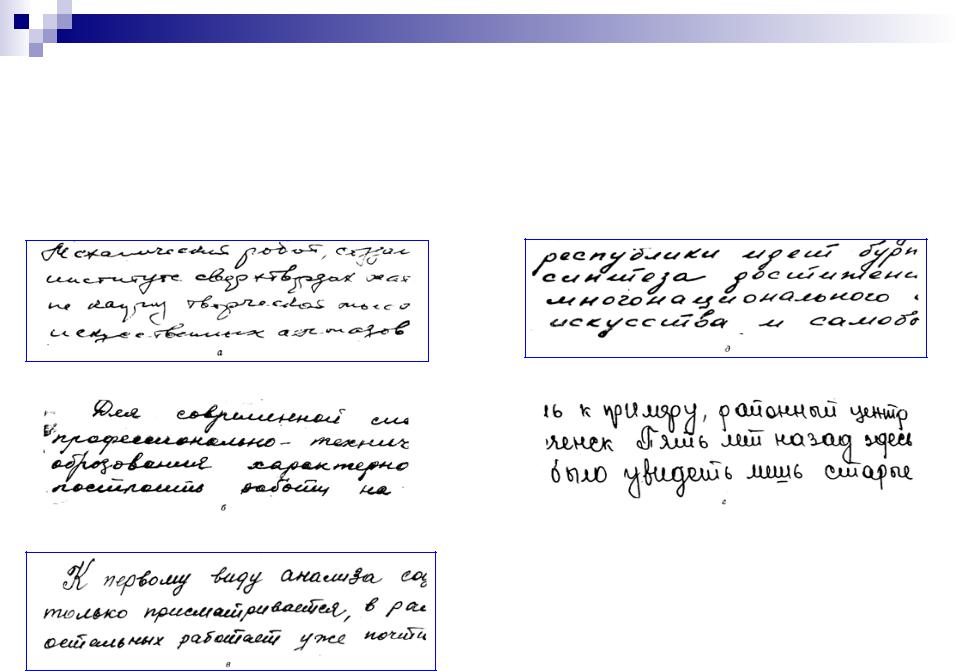 Механический робот, создан
институте сверхтвердых мат
не научну творческой мысл
искусственных алмазов
а
Для современной сис
профессионально-технич
образования характерно
построить работу на
б
К первому виду анализа соц
только присматривается, в рай
остальных работает уже почти
в
республики идет бурн
синтеза достижени
многонационального
искусства и самобы
д
ь к примеру, районный центр
ченск Пять лет назад здесь
было увидеть лишь старые
е